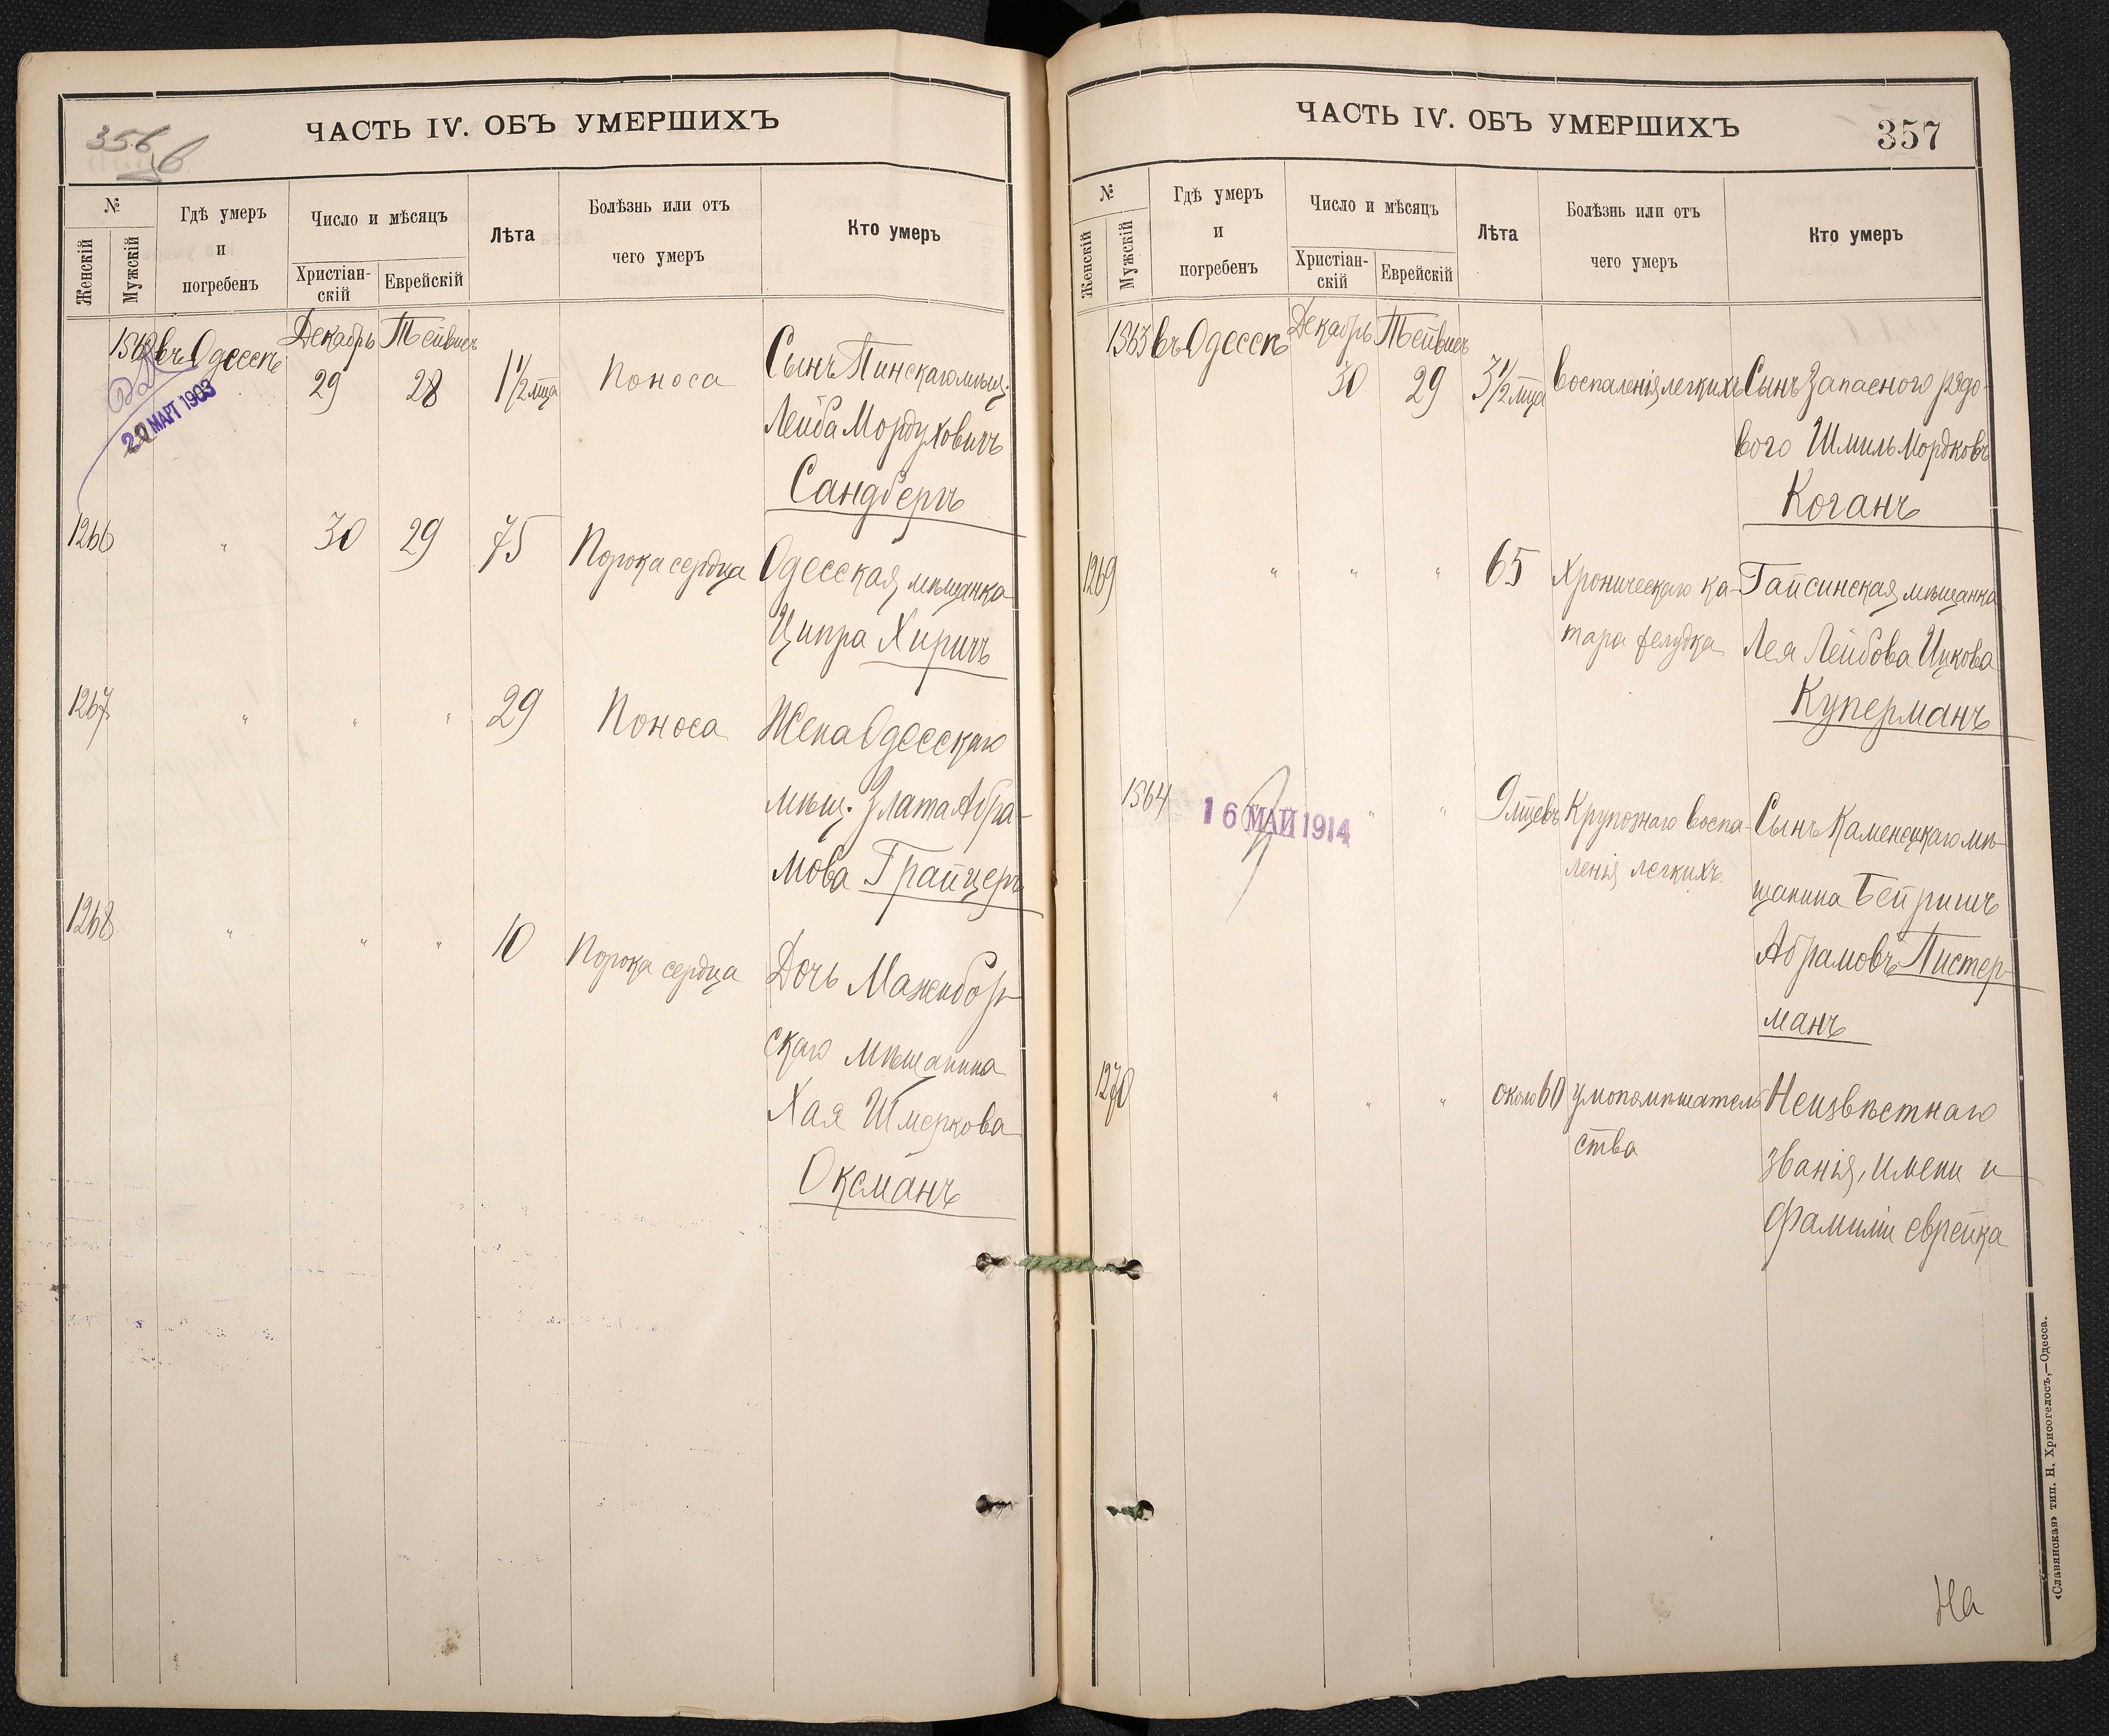 356
ЧАСТЬ IV. ОБЪ УМЕРШИХЪ
№
Женскій
Мужскій
Гдѣ умеръ
и
погребенъ
Число и мѣсяцъ
Христіан-
скій
Еврейскій
Лѣта
Болѣзнь или отъ
чего умеръ
Кто умеръ
въ Одессѣ
Декабрь
29
28
1 1/2 мца
Поноса
Сынъ Пинскаго мѣщ.
Лейба Мордуховичъ
Сандбергъ
20 МАРТ 1903
1266
"
30
29
75
Порока сердца
Одесская мѣщанка
Ципра Хиричъ
1267
"
"
"
29
Поноса
Жена Одесскаго
мѣщ. Злата Абра-
мова Грайцеръ
1268
"
"
"
10
Порока сердца
Дочь Межибор-
скаго мѣщанина
Хая Шмеркова
Оксманъ
ЧАСТЬ IV. ОБЪ УМЕРШИХЪ
357
№
Женскій
Мужскій
Гдѣ умеръ
и
погребенъ
Число и мѣсяцъ
Христіан-
скій
Еврейскій
Лѣта
Болѣзнь или отъ
чего умеръ
Кто умеръ
1563
въ Одессѣ
Декабрь
30
29
3 1/2 мца
Воспаленія легкихъ
Сынъ Запасного рядо-
вого Шмиль Мордковъ
Коганъ
1269
"
"
"
65
Хроническаго ка-
тара желудка
Гайсинская мѣщанка
Лея Лейбова Ицкова
Куперманъ
1564
16 МАЙ 1914
"
"
9 мцевъ
Крупознаго воспа-
ленія легкихъ
Сынъ Каменецкаго мѣ-
щанина Бейришъ
Абрамовъ Пистер-
манъ
1270
"
"
"
около 60
умопомѣшатель-
ства
Неизвѣстнаго
званія, имени и
фамиліи еврейка
На
«Славянская» тип. Н. Хрисогелосъ,—Одесса.